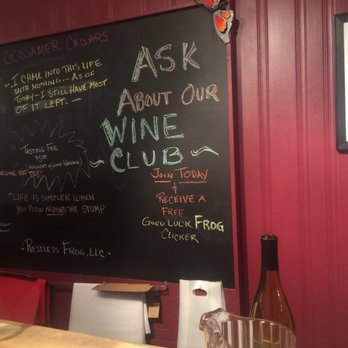 Gossamer Cellars
"I came into this life
with nothing... as of
today - I still have most
of it left. -
Tasting Fee
"Life is simpler when
you plow around the stump
- Restless Frog, LLC -
Ask
About Our
Wine
~ Club ~
Join Today
&
Receive a
Free
Good Luck Frog
Clicker